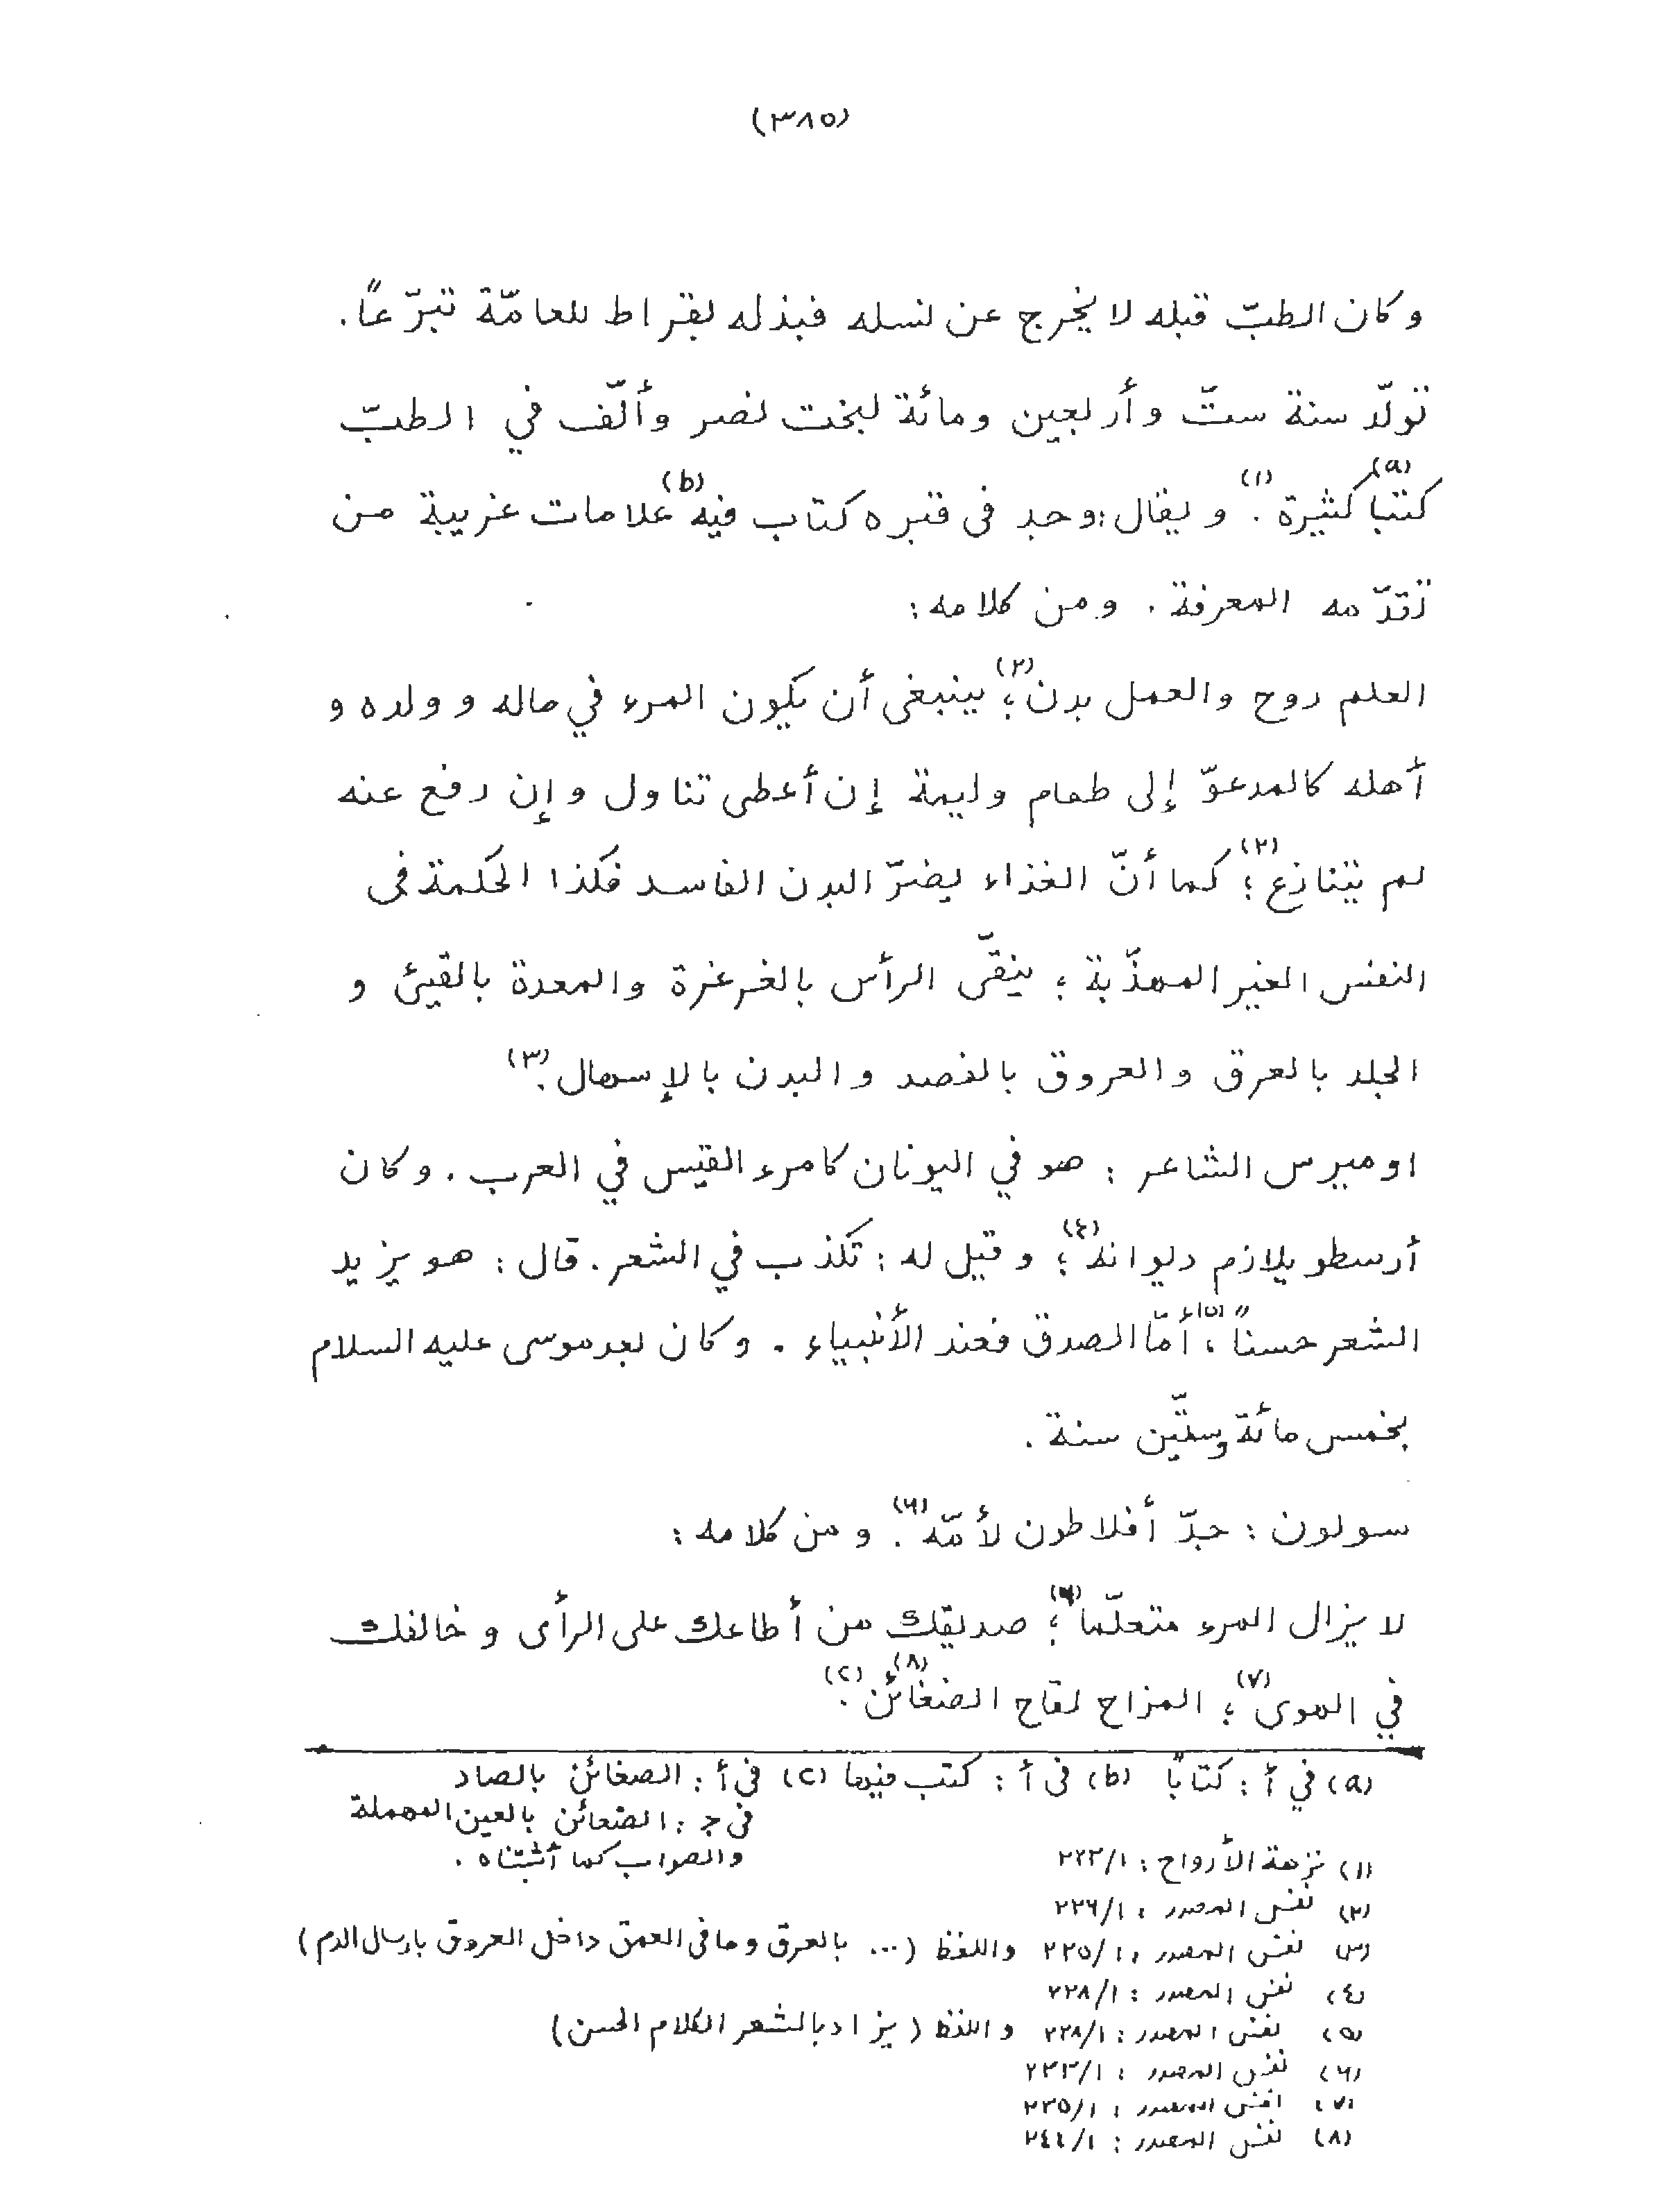 (٣٨٥)
وكان الطبّ قبله لا يخرج عن نسله فبذله بقراط للعامّة تبرّعاً.
تولّد سنة ستّ وأربعين ومائة لبخت نصر وألّف في الطبّ
كتبًا(a) كثيرة(١). ويقال: وجد في قبره كتاب فيه(b) علامات غريبة من
تقدّمه المعرفة. ومن كلامه:
العلم روح والعمل بدن(٢)؛ ينبغى أن يكون المرء في ماله وولده و
أهله كالمدعوّ إلى طعام وليمة إن أعطى تناول وإن رفع عنه
لم يتنازع(٢)؛ كما أنّ الغذاء يضرّ البدن الفاسد فكذا الحكمة فى
النفس الغير المهذّبة؛ ينقّى الرأس بالغرغرة والمعدة بالقيئ و
الجلد بالعرق والعروق بالفصد والبدن بالإسهال(٣).
اوميرس الشاعر: هو في اليونان كامرء القيس في العرب. وكان
أرسطو يلازم ديوانه(٤)؛ وقيل له: تكذب في الشعر. قال: هو يزيد
الشعر حسناً(٥)، أمّا الصدق فعند الأنبياء. وكان بعد موسى عليه السلام
بخمس مائة وستّين سنة.
سولون: جدّ أفلاطون لأمّه(٦). ومن كلامه:
لا يزال المرء متعلّما(٦)؛ صديقك من أطاعك على الرأى وخالفك
في الهوى(٧)؛ المزاح لقاح الضغائن(٨)(c).
(a) في أ: كتابًا (b) فى أ: كتب فيها (c) فى أ: الصغائن بالصاد
فى ج: الضعائن بالعين المهملة
والصواب كما أثبتناه.
(١) نزهة الأرواح: ٢٢٣/١
(٢) نفس المصدر: ٢٢٦/١
(٣) نفس المصدر: ٢٢٥/١ واللفظ (... بالعرق وما فى العمق داخل العروق بارسال الدم)
(٤) نفس المصدر: ٢٢٨/١
(٥) نفس المصدر: ٢٢٨/١ واللفظ (يزاد بالشعر الكلام الحسن)
(٦) نفس المصدر: ٢٣٣/١
(٧) نفس المصدر: ٢٣٥/١
(٨) نفس المصدر: ٢٤٤/١